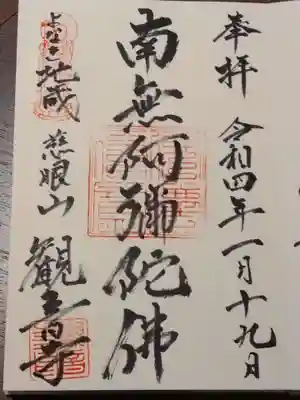 奉拝 令和四年一月十九日
南無阿彌陀佛
よなき地蔵 慈眼山 観音寺